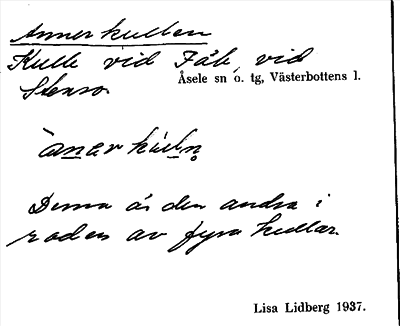 Annerkullen
Kulle vid Fäb. vid
Åsele sn o. tg, Västerbottens l.
Stensö
Denna är den andra i
raden av fyra kullar.
Lisa Lidberg 1937.